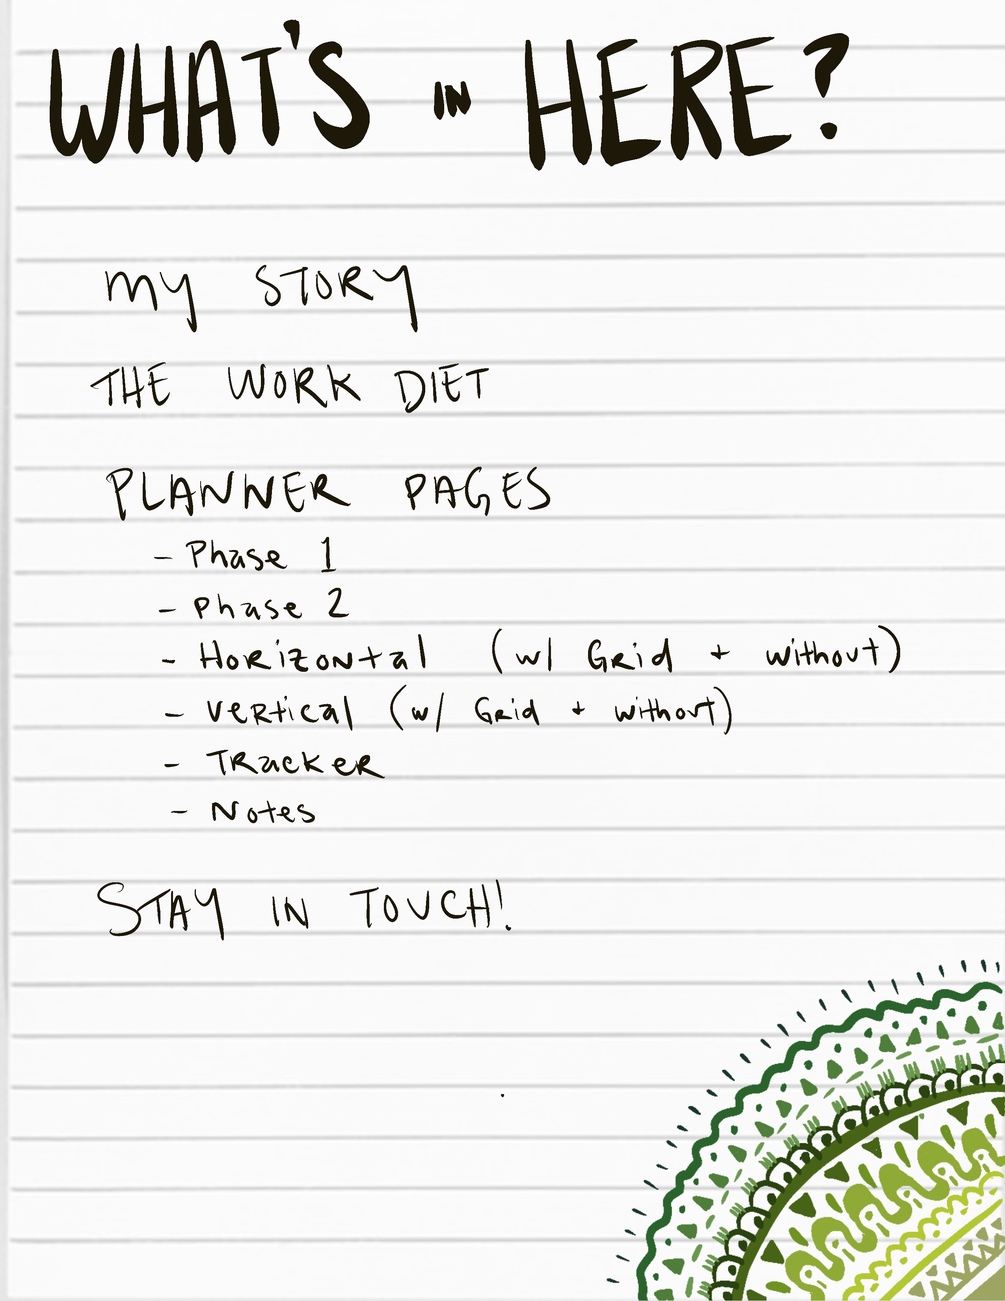 WHAT'S IN HERE?
MY STORY
THE WORK DIET
PLANNER PAGES
- Phase 1
- Phase 2
- Horizontal (w/ Grid + without)
- Vertical (w/ Grid + without)
- Tracker
- Notes
STAY IN TOUCH!